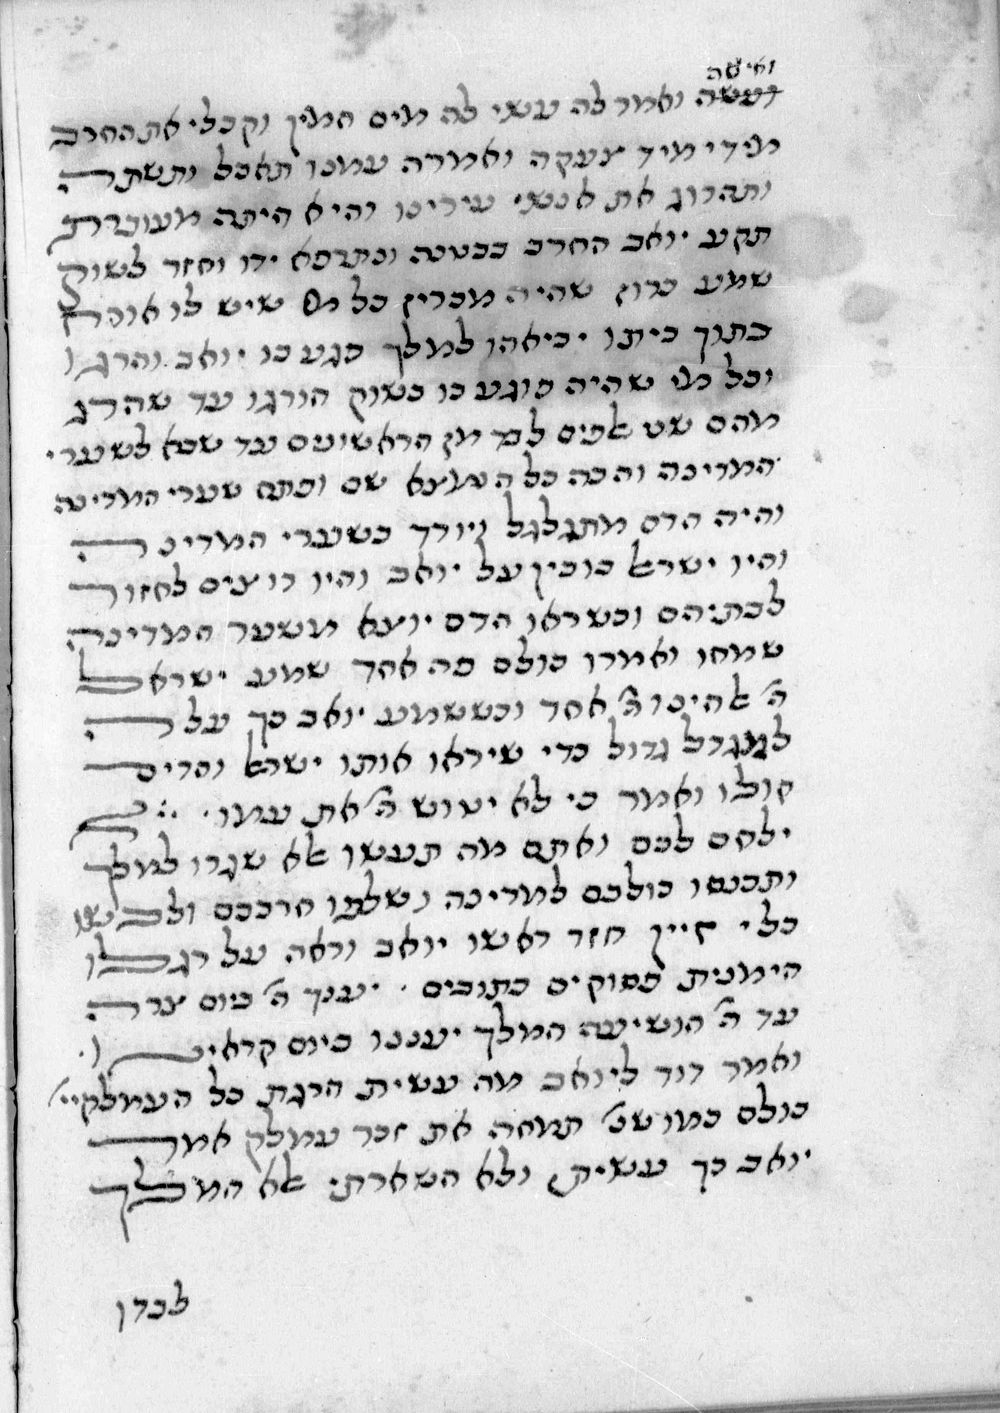 ואישה
ועשה ואמר לה עשי לה מים חמין וקבלי את החרב
מידי מיד צעקה ואמרה עמנו תאכל ותשתה
ותהרוג את אנשי עירינו והיא היתה מעוברת
תקע יואב החרב בבטנה ונתרפא ידו וחזר לשוק
שמע כרוז שהיה מכריז כל מי שיש לו אורח
בתוך ביתו יביאהו למלך פגע בו יואב והרגו
וכל מי שהיה פוגע בו בשוק הורגו עד שהרג
מהם שני אלפים לבד מן הראשונים עד שבא לשערי
המדינה והכה כל הנמצא שם ופתח שערי המדינה
והיה הדם מתגלגל ויורד בשערי המדינה
והיו ישראל בוכין על יואב והיו רוצים לחזור
לבתיהם וכשראו הדם יוצא משער המדינה
שמחו ואמרו כולם פה אחד שמע ישראל
ה׳ אלהינו ה׳ אחד וכששמע יואב כך עלה
למגדל גדול כדי שיראו אותו ישראל והרים
קולו ואמר כי לא יטוש ה׳ את עמו
ילחם לכם ואתם מה תעשו אלא שגרו למלך
ותכנסו כולכם למדינה ושלפו חרבכם ולבשו
כלי זיין חזר ראשו יואב וראה על רגלו
הימנית פסוקים כתובים יענך ה׳ ביום צרה
עד ה׳ הושיעה המלך יעננו ביום קראינו
ואמר דוד ליואב מה עשית הרגת כל העמלקיי׳
כולם כמו שנ׳ תמחה את זכר עמלק אמר
יואב כך עשיתי ולא השארתי אלא המלך
לבדו